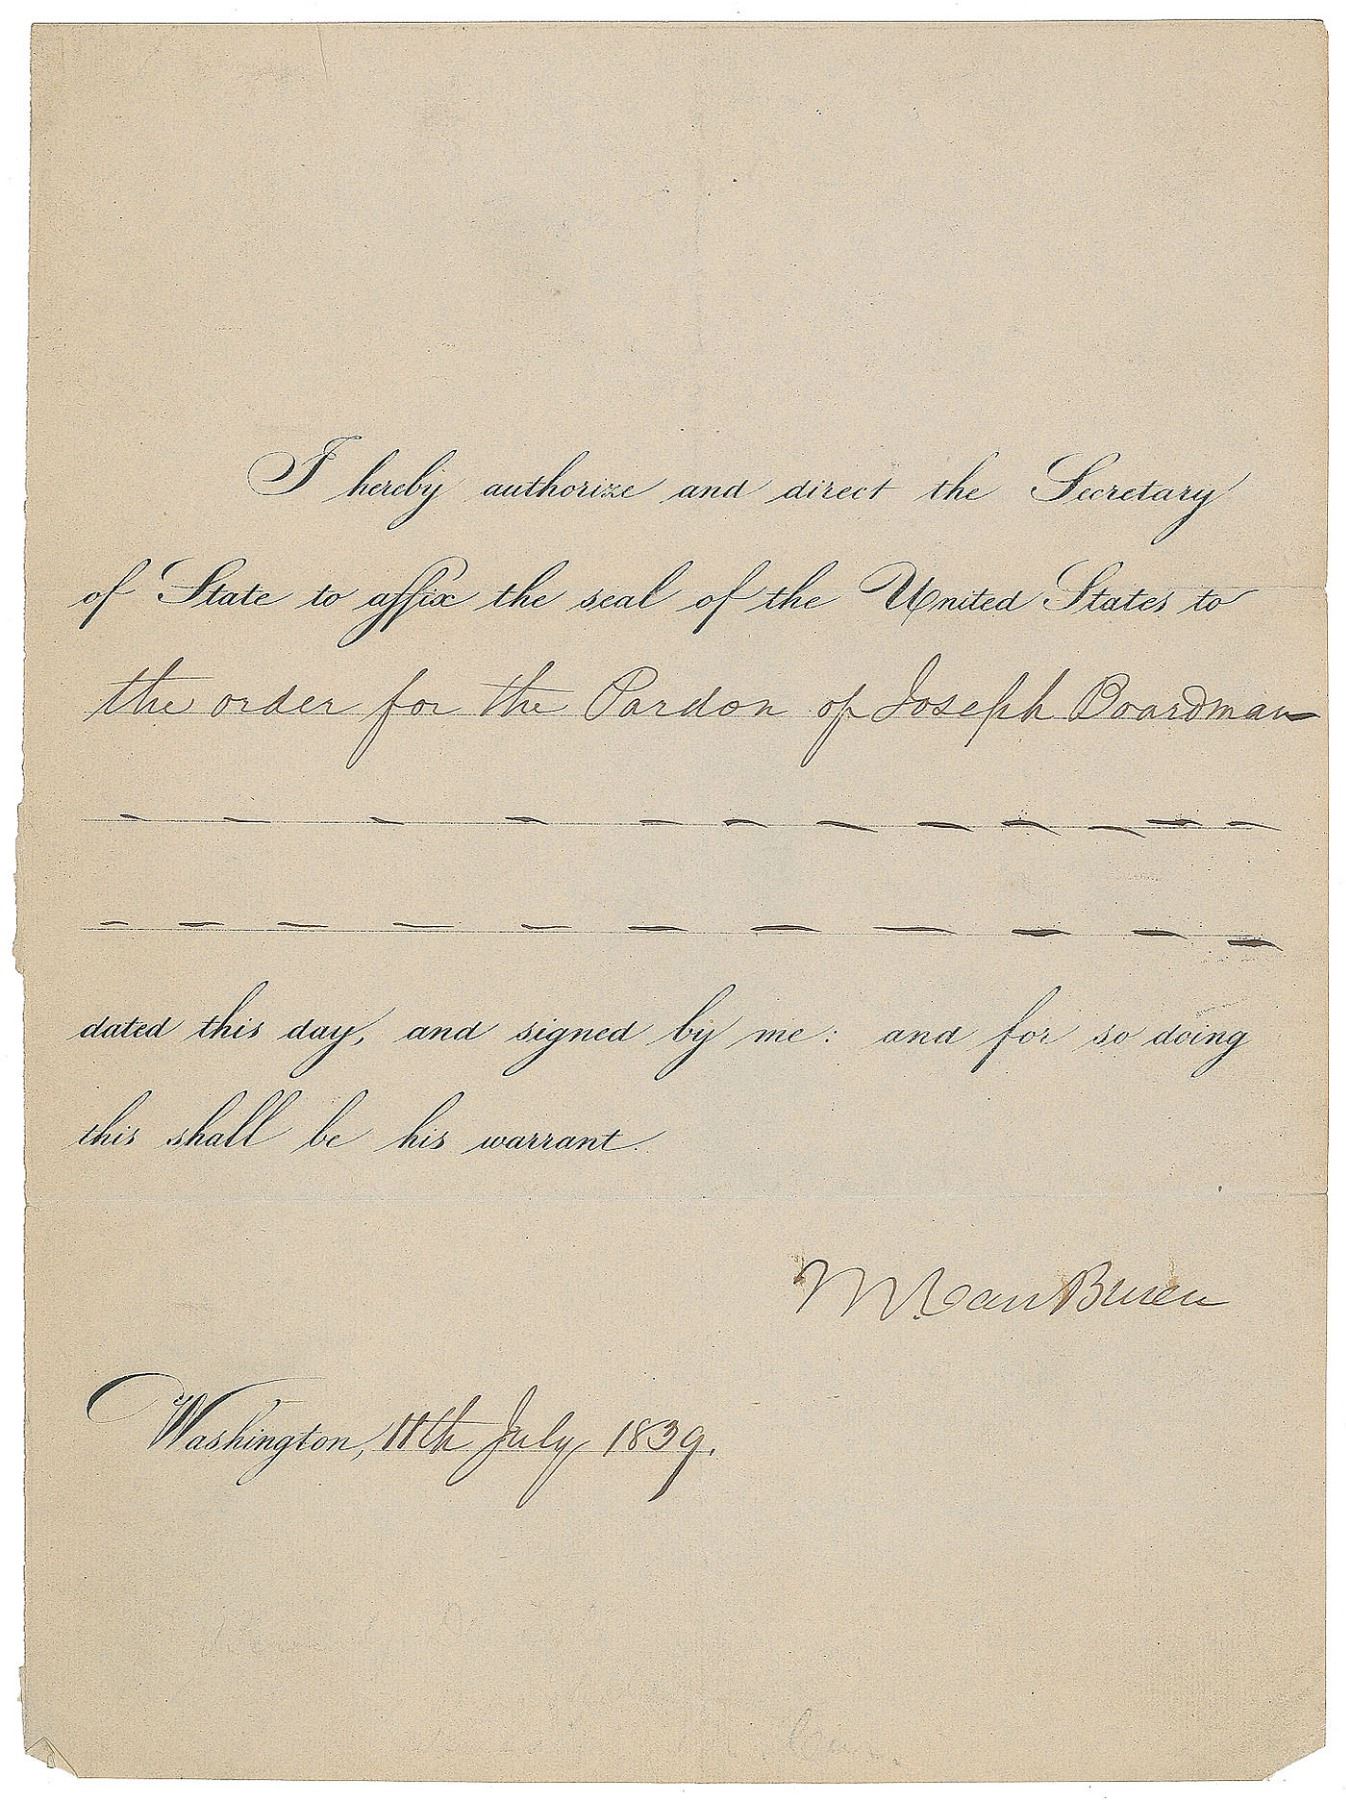 I hereby authorize and direct the Secretary
of State to affix the seal of the United States to
the order for the Pardon of Joseph Boardman
dated this day, and signed by me: and for so doing
this shall be his warrant.
M Van Buren
Washington, 11th July 1839.